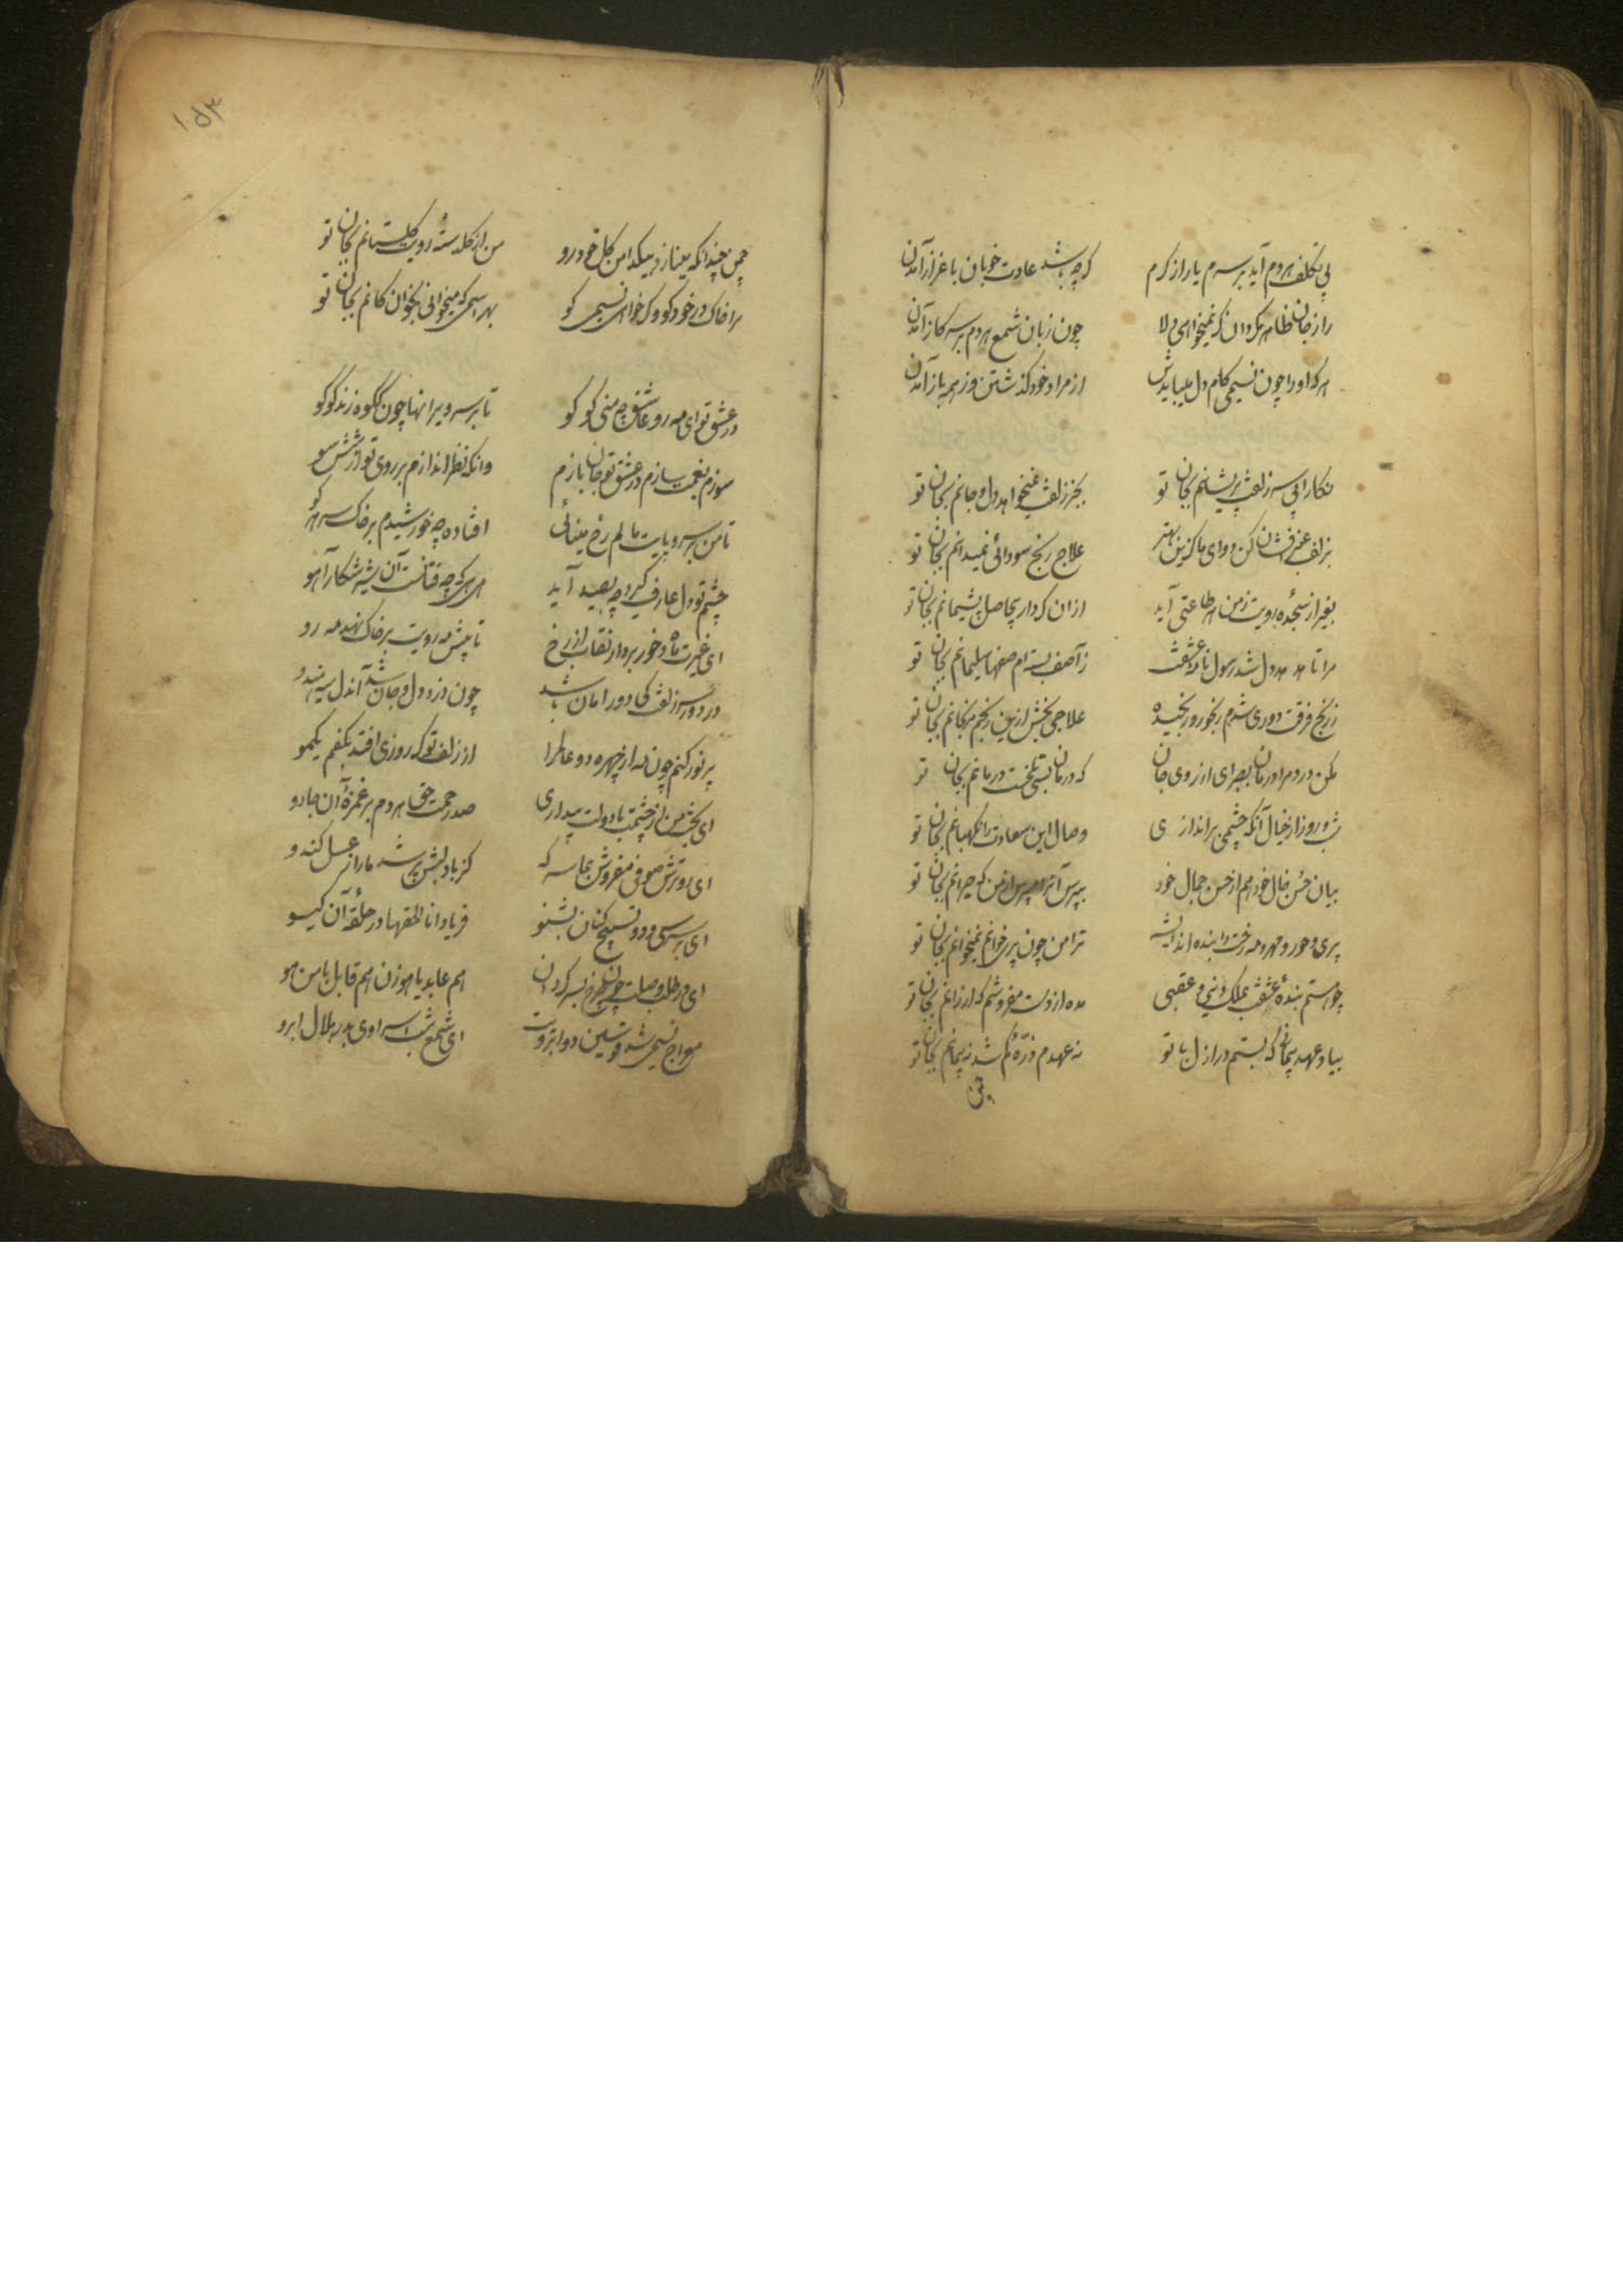 بی تکلف هر دم آید بر سرم یار از کرم
کرچه باشد عادت خوبان با عزاز آمدن
راز جان ظاهر مکردان کر نمیخواهی دلا
چون زبان شمع هر دم بر سر کاز آمدن
هر که او را چون نسیمی کام دل میبایدش
از مراد خود کذشتن وز همه باز آمدن
نکارا بی سر زلفت پریشانم بجان تو
بجز زلفت نمیخواهد دل و جانم بجان تو
بزلف عنبر افشان کن دوای ما کزین بهتر
علاج رنج سودائی نمیدانم بجان تو
بغیر از سجدۀ رویت ز من هر طاعتی آید
ازان کردار بیحاصل پشیمانم بجان تو
مرا تا هدهد دل شد رسول نامۀ عشقت
ز آصف بسته ام صفها سلیمانم بجان تو
ز رنج فرقت و دوری شدم رنجور و رنجیده
علاجی بخش ازین رنجم مرنجانم بجان تو
مکن درد مرا درمان بصبر ای از روی جان
که درمان بسی تلخست درمانم بجان تو
شب و روز از خیال آنکه چشمی بر اندازی
وصال این سعادت را نکهبانم بجان تو
بیان حسن خال خود هم از حسن جمال خود
بپرس آنرا مپرس از من که حیرانم بجان تو
پری و حور و مهر و مه رخت را بنده اند
ترا من چون پری خوانم نمیخوانم بجان تو
چو هستم بندۀ عشقت بملک دنیی و عقبی
مده از دست و مفروشم که ارزانم بجان تو
بیاد عهد و پیمانی که بستم در ازل با تو
نه عهدم ذرۀ کم شد نه پیمانم بجان تو
۱۵۳
چمن چندانکه مینازد بیکدامن کل خودرو
من از کلدستۀ رویت کلستانم بجان تو
مرا خاک در خود کو و کر خواهی نسیمی کو
بهر اسمی که میخوانی بخوان کانم بجان تو
در عشق تو ای مه رو عاشق چو منی کو کو
تا بر سر ویرانها چون کوکوه زند کوکو
سوزم بغمت سازم در عشق تو جان بازم
وانکه نظر اندازم بر روی تو از شش سو
تا من بسر و پایت مالم رخ مینائی
افتاده چو خورشیدم بر خاک سر هر کو
چشم تو دل عارف کیرد چو بصید آید
ای غیرت ماه و خور بردار نقاب از رخ
تا پیش مه رویت بر خاک نهد مه رو
در دور سر زلفت کی دور امان باشد
چون دزد دل و جان شد آندل سیه هندو
پر نور کنم چون مه از چهره دو عالم را
از زلف تو کر روزی افتد بکفم یکمو
ای بخت من از چشمت با دولت بیداری
صد رحمت حق هر دم بر غمزۀ آن جادو
ای روترش صوفی مفروش بما سرکه
کز یاد لبش پر شد ما را ز عسل کندو
فریاد انا الحقها در حلقۀ آن کیسو
معراج نسیمی شد قوسین دو ابرویت